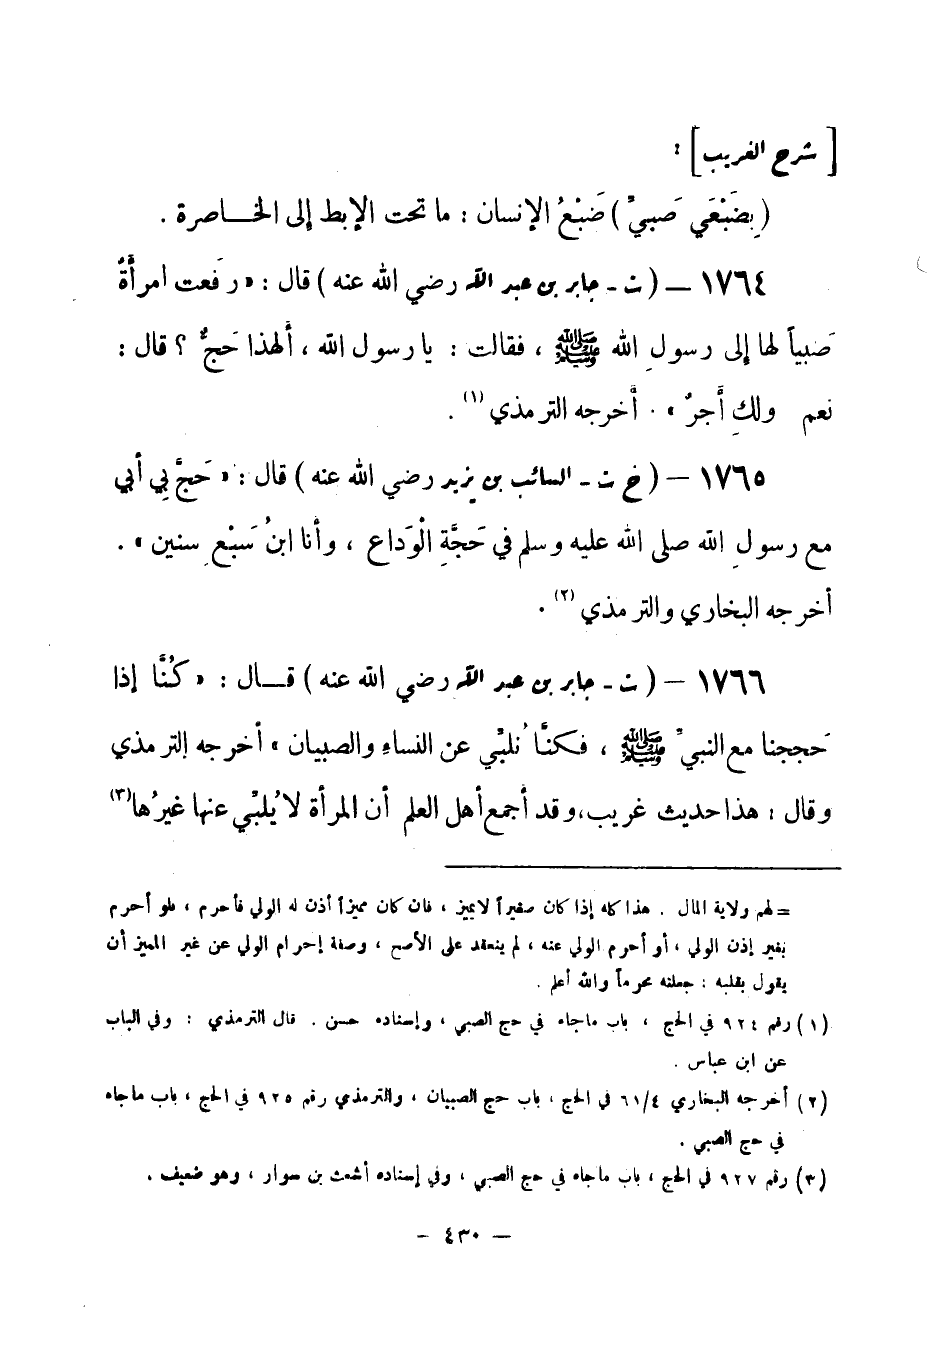 [ شرح الغريب ] :
( بِضَبْعَي صَبيّ ) ضَبْعُ الإنسان : ما تحت الإبط إلى الخـاصرة .
١٧٦٤ – ( ت ـ جابر بن عبد الله رضي الله عنه ) قال : « رَفَعت امرأَةٌ
صَبياً لها إلى رسولِ الله ﷺ ، فقالت : يا رسول الله ، ألهذا حَجٌّ ؟ قال :
نعم ولكِ أَجرٌ » . أخرجه الترمذي (١) .
١٧٦٥ – ( خ ت ـ السائب بن يزيد رضي الله عنه ) قال : « حَجَّ بِي أَبي
مع رسولِ الله صلى الله عليه وسلم في حَجَّةِ الْوَداع ، وأنا ابنُ سَبْعِ سنين » .
أخرجه البخاري والترمذي (٢) .
١٧٦٦ – ( ت ـ جابر بن عبد الله رضي الله عنه ) قـال : « كُنَّا إذا
حَججنا مع النبيّ ﷺ ، فكنَّا نُلبّي عن النساءِ والصبيان » أخرجه الترمذي
وقال : هذا حديث غريب، وقد أجمع أهل العلم أن المرأة لا يُلبّي عنها غيرُها (٣)
= لهم ولاية المال . هذا كله إذا كان صغيراً لا يميز ، فان كان مميزاً أذن له الولي فأحرم ، فلو أحرم
بغير إذن الولي ، أو أحرم الولي عنه ، لم ينعقد على الأصح ، وصفة إحرام الولي عن غير المميز أن
يقول بقلبه : جعلته محرماً والله أعلم .
(١) رقم ٩٢٤ في الحج ، باب ما جاء في حج الصبي ، وإسناده حسن . قال الترمذي : وفي الباب
عن ابن عباس .
(٢) أخرجه البخاري ٤/٦١ في الحج ، باب حج الصبيان ، والترمذي رقم ٩٢٥ في الحج ، باب ما جاء
في حج الصبي .
(٣) رقم ٩٢٧ في الحج ، باب ما جاء في حج الصبي ، وفي إسناده أشعث بن سوار ، وهو ضعيف .
– ٤٣٠ –